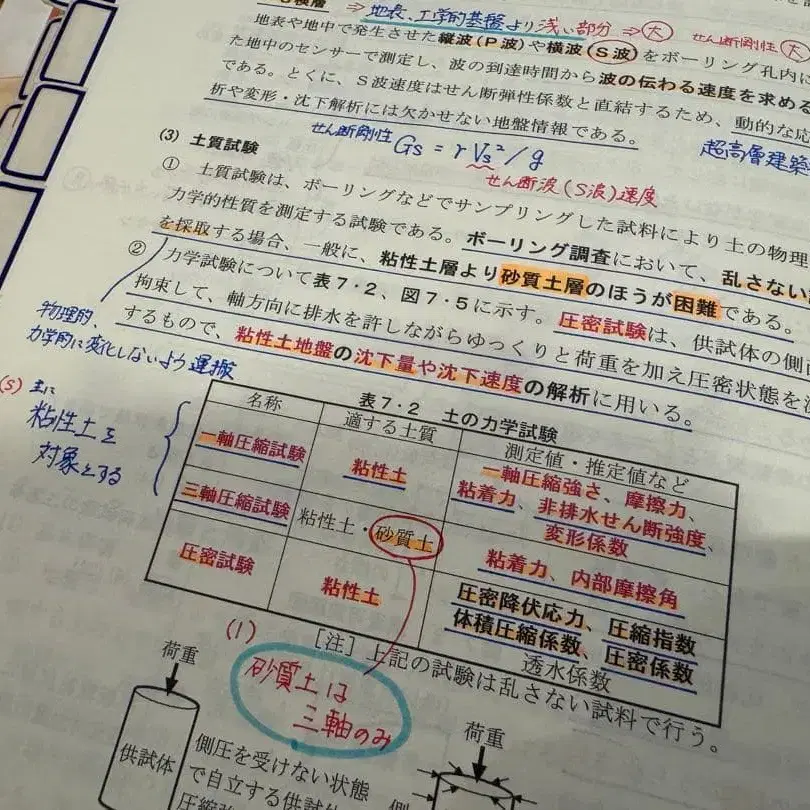 ⇒地表、工学的基盤より浅い部分⇒大 せん断剛性 大
地表や地中で発生させた縦波（P波）や横波（S波）をボーリング孔内に
た地中のセンサーで測定し、波の到達時間から波の伝わる速度を求める
である。とくに、S波速度はせん断弾性係数と直結するため、動的な応
析や変形・沈下解析には欠かせない地盤情報である。
せん断剛性 Gs = rVs²/g
超高層建築
せん断波(S波)速度
(3) 土質試験
① 土質試験は、ボーリングなどでサンプリングした試料により土の物理
力学的性質を測定する試験である。ボーリング調査において、乱さない
を採取する場合、一般に、粘性土層より砂質土層のほうが困難である。
② 力学試験について表7・2、図7・5に示す。圧密試験は、供試体の側
拘束して、軸方向に排水を許しながらゆっくりと荷重を加え圧密状態を
するもので、粘性土地盤の沈下量や沈下速度の解析に用いる。
物理的、
力学的に変化しないよう運搬
(S) 主に
粘性土を
対象とする
表7・2 土の力学試験
名称 適する土質 測定値・推定値など
一軸圧縮試験 粘性土 一軸圧縮強さ、摩擦力、
粘着力、非排水せん断強度、
変形係数
三軸圧縮試験 粘性土・砂質土 粘着力、内部摩擦角
圧密試験 粘性土 圧密降伏応力、圧縮指数
体積圧縮係数、圧密係数
透水係数
［注］上記の試験は乱さない試料で行う。
(1)
砂質土は
三軸のみ
荷重
供試体
側圧を受けない状態
で自立する供試体
荷重
側